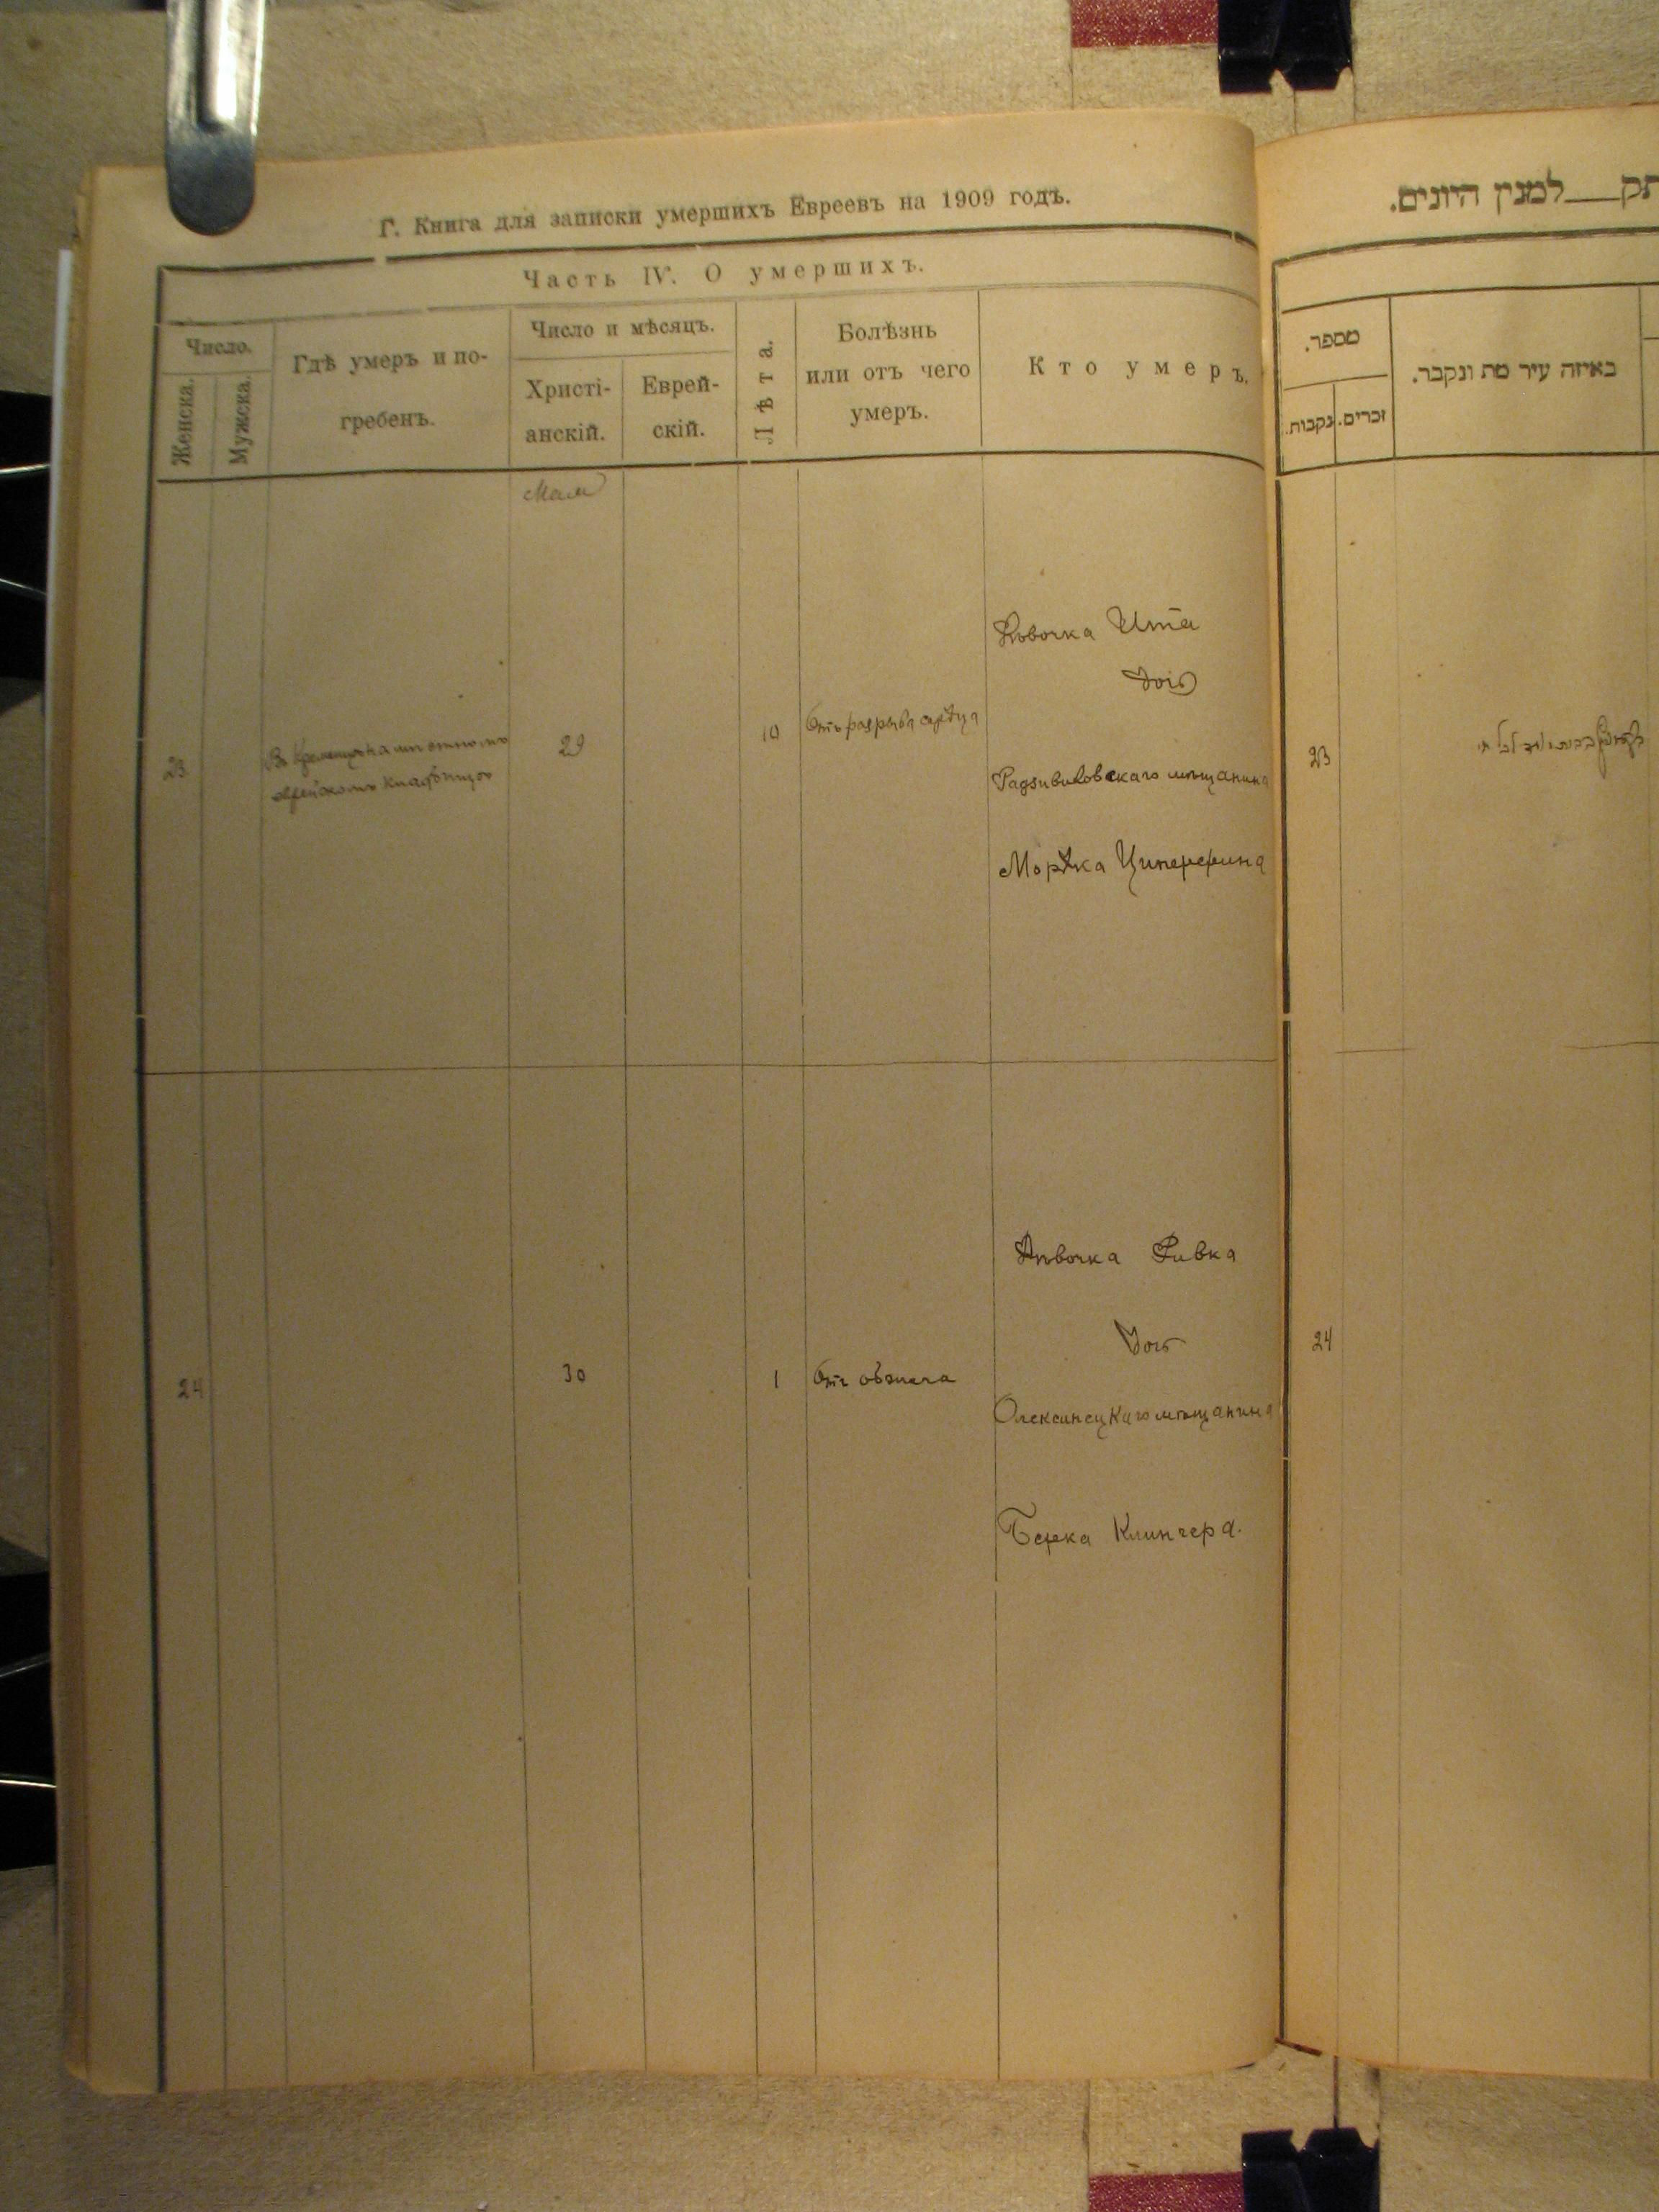 Г. Книга для записки умершихъ Евреевъ на 1909 годъ.
Часть IV. О умершихъ.
Число.
Женска.
Мужска.
Гдѣ умеръ и по-
гребенъ.
Число и мѣсяцъ.
Христі-
анскій.
Еврей-
скій.
Лѣта.
Болѣзнь
или отъ чего
умеръ.
Кто умеръ.
Мая
23
Въ Кременцѣ на мѣстномъ
еврейскомъ кладбищѣ
29
10
Отъ разрыва сердца
Дѣвочка Ита
дочь
Радзивиловскаго мѣщанина
Мордка Циперфина
24
30
1
Отъ обжога
Дѣвочка Ривка
дочь
Олексинецкаго мѣщанина
Берка Клингера.
תק___למנין היונים.
מספר.
נקבות.
זכרים.
באיזה עיר מת ונקבר.
23
24